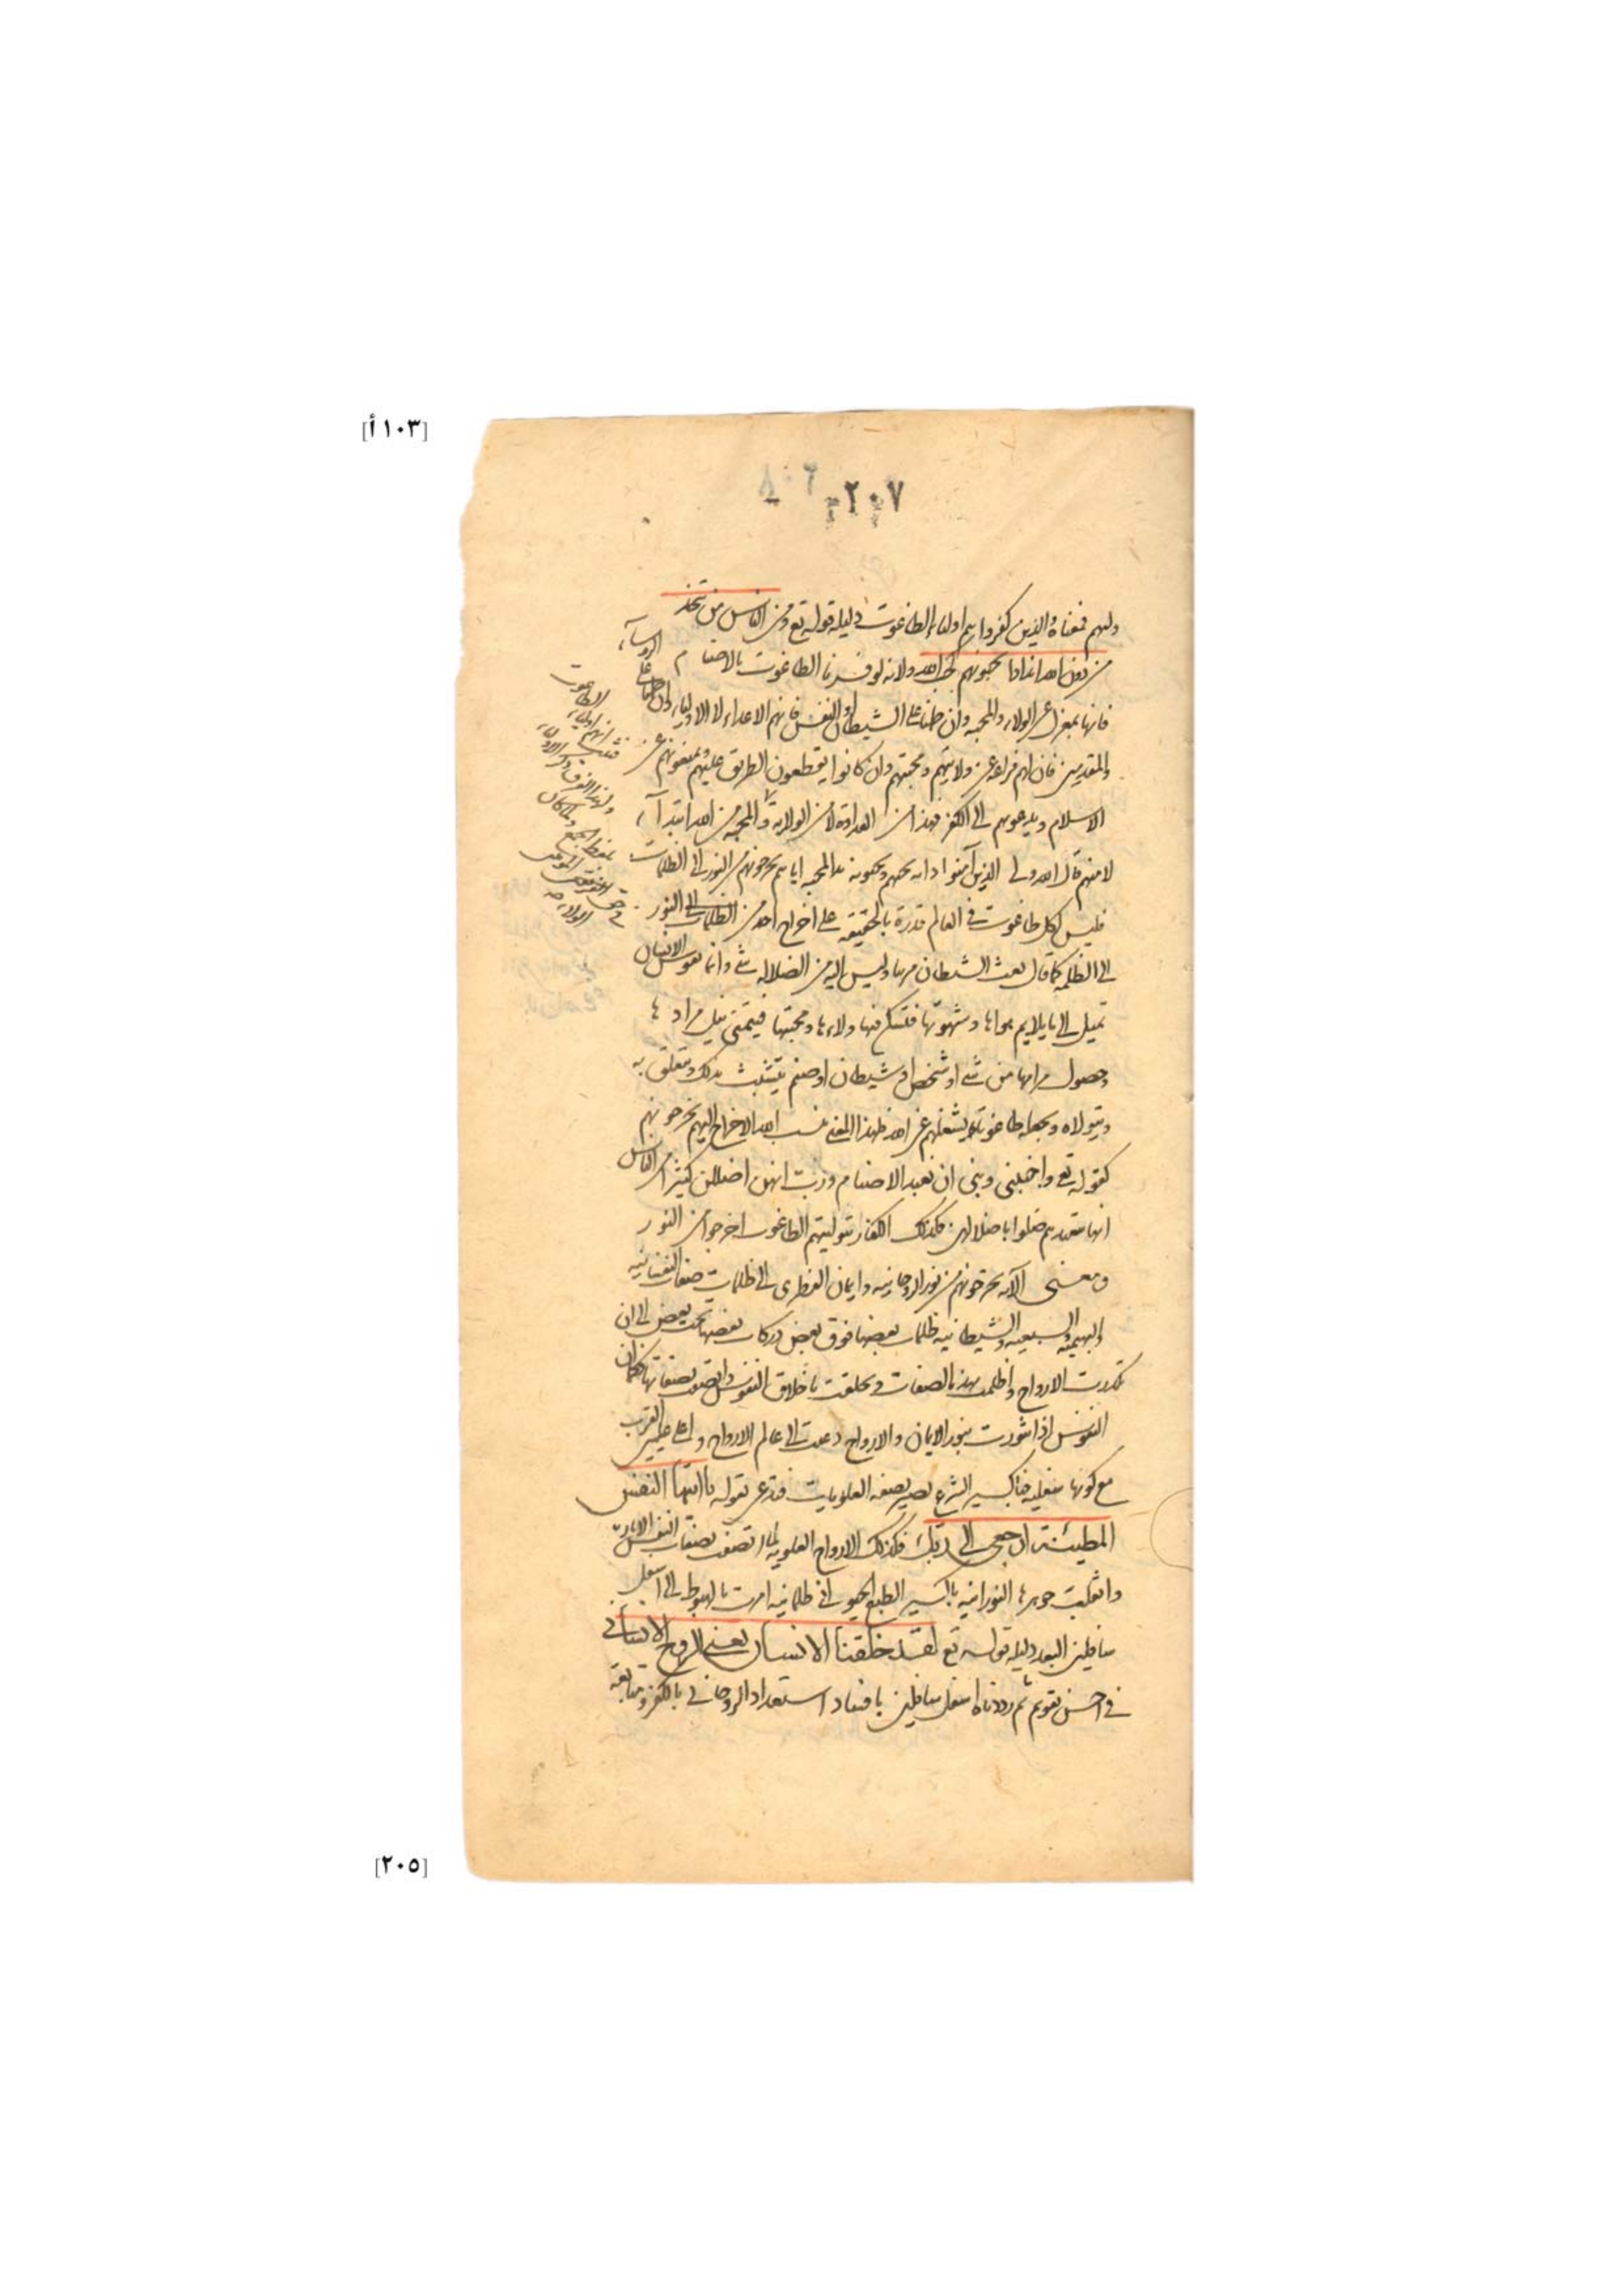 [١٠٣أ]
٢٠٧
وليهم فمعناه والذين كفروا هم اولياء الطاغوت دليله قوله تع ومن الناس من يتخذ
من دون الله اندادا يحبونهم كحب الله ولانه لو فسرنا الطاغوت بالاصنام
فانها بمعزل عن الولاء والمحبه وان حملنا على الشيطان والنفس فانهم الاعداء لا الاولياء وان حملنا على الروساء
والمقدمين فان لهم فراغه عن ولايتهم ومحبتهم وان كانوا يقطعون الطريق عليهم ويمنعونهم عن
الاسلام ويدعوهم الى الكفر فهذا من العداوة لا من الولاية والمحبه من الله ابتداء
لا منهم قال الله ولى الذين آمنوا اى انه يحبهم ويحبونه المحبه اياهم يخرجونهم من النور الى الظلمات
فليس لكل طاغوت فى العالم قدرة بالحقيقه على اخراج احد من الظلمات الى النور
الى الظلمه كما قال بعث الشيطان مزينا وليس اليه من الضلاله شى وانما نفوس الانسان
تميل الى ما يلايم هواها وشهوتها ولاءها ومحبتها فيتمنى نيل مرادها
وحصول مرامها من شى او شخص او شيطان او صنم يتشبث بذلك ويتعلق به
ويتولاه ويجعله طاغوته يشغلهم عن الله فلهذا المعنى نسب الله الاخراج اليهم يخرجونهم
كقوله تع واجنبنى وبنى ان نعبد الاصنام رب انهن اضللن كثيرا من الناس
ضلوا باضلالهن فكذلك الكفار بتوليتهم الطاغوت اخرجوا من النور
ومعنى الآيه يخرجونهم من نور الروحانيه وايمان الفطرى الى ظلمات صفات النفسانيه
والبهيميه والسبعيه والشيطانيه ظلمات بعضها فوق بعض دركات بعضها تحت بعض الى ان
تكدرت الارواح واظلمت بهذه الصفات وتخلقت باخلاق النفوس واتصفت بصفاتها كما ان
النفوس اذا تنورت بنور الايمان والارواح دعت الى عالم الارواح واعلى عليين القرب
مع كونها سفليه فباكسير الشرع يصير بصفه العلويات بقوله يا ايتها النفس
المطمئنة ارجعى الى ربك فكذلك الارواح العلويه لما اتصفت بصفات النفس الامارة
وانقلبت جوهرها النورانيه باكسير الطبع الحيوانى ظلمانيه امرت بالهبوط الى اسفل
سافلين البعد دليله قوله تع لقد خلقنا الانسان يعنى الروح الانسانى
فى احسن تقويم ثم رددناه اسفل سافلين بافساد استعداد الروحانى بالكفر ومتابعة
الطاغوت
انهم اولياء
فثبت
ولهذا الفرق ذكر الاولياء
بلفظ الجمع
[٢٠٥]